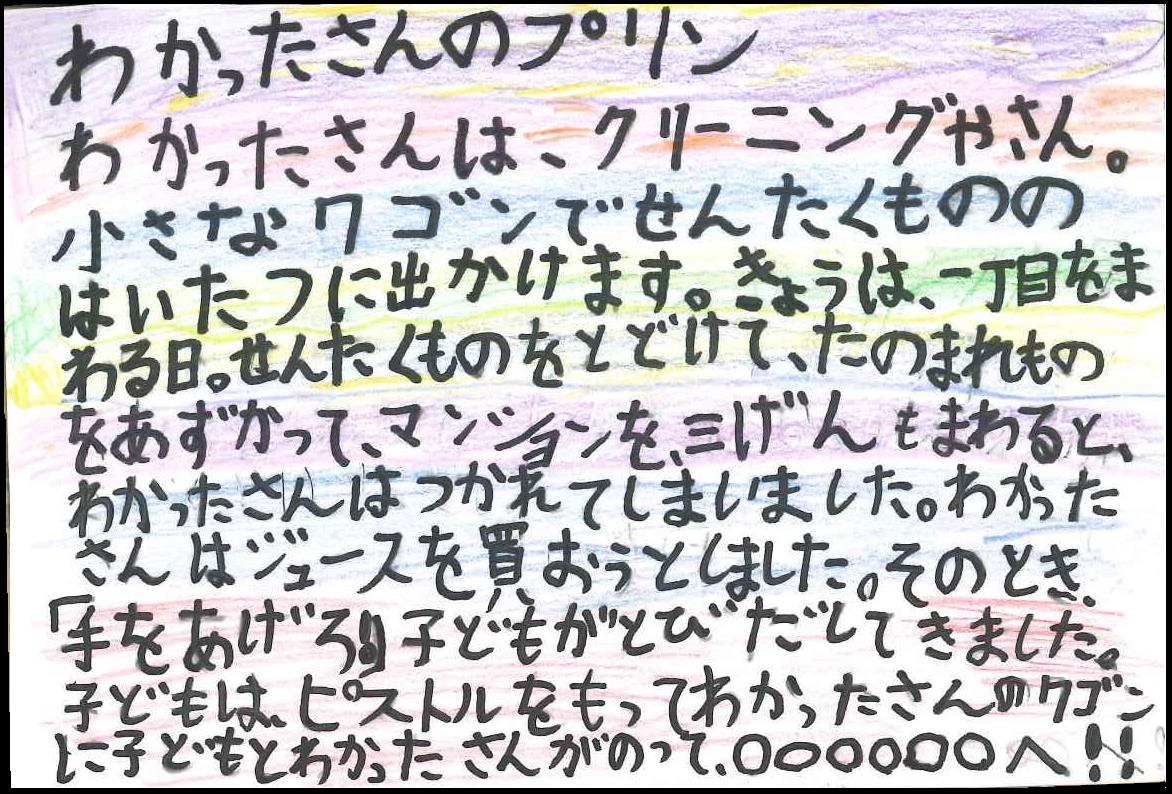 わかったさんのプリン
わかったさんは、クリーニングやさん。
小さなワゴンでせんたくものの
はいたつに出かけます。きょうは、一丁目をま
わる日。せんたくものをとどけて、たのまれもの
をあずかって、マンションを、三げんもまわると、
わかったさんはつかれてしまいました。わかった
さんはジュースを買おうとしました。そのとき、
「手をあげろ!!」子どもがとびだしてきました。
子どもは、ピストルをもってわかったさんのワゴン
に子どもとわかったさんがのって、〇〇〇〇〇〇へ!!